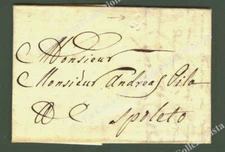 Monsieur
Monsieur Andreas Pila
A C Spoleto